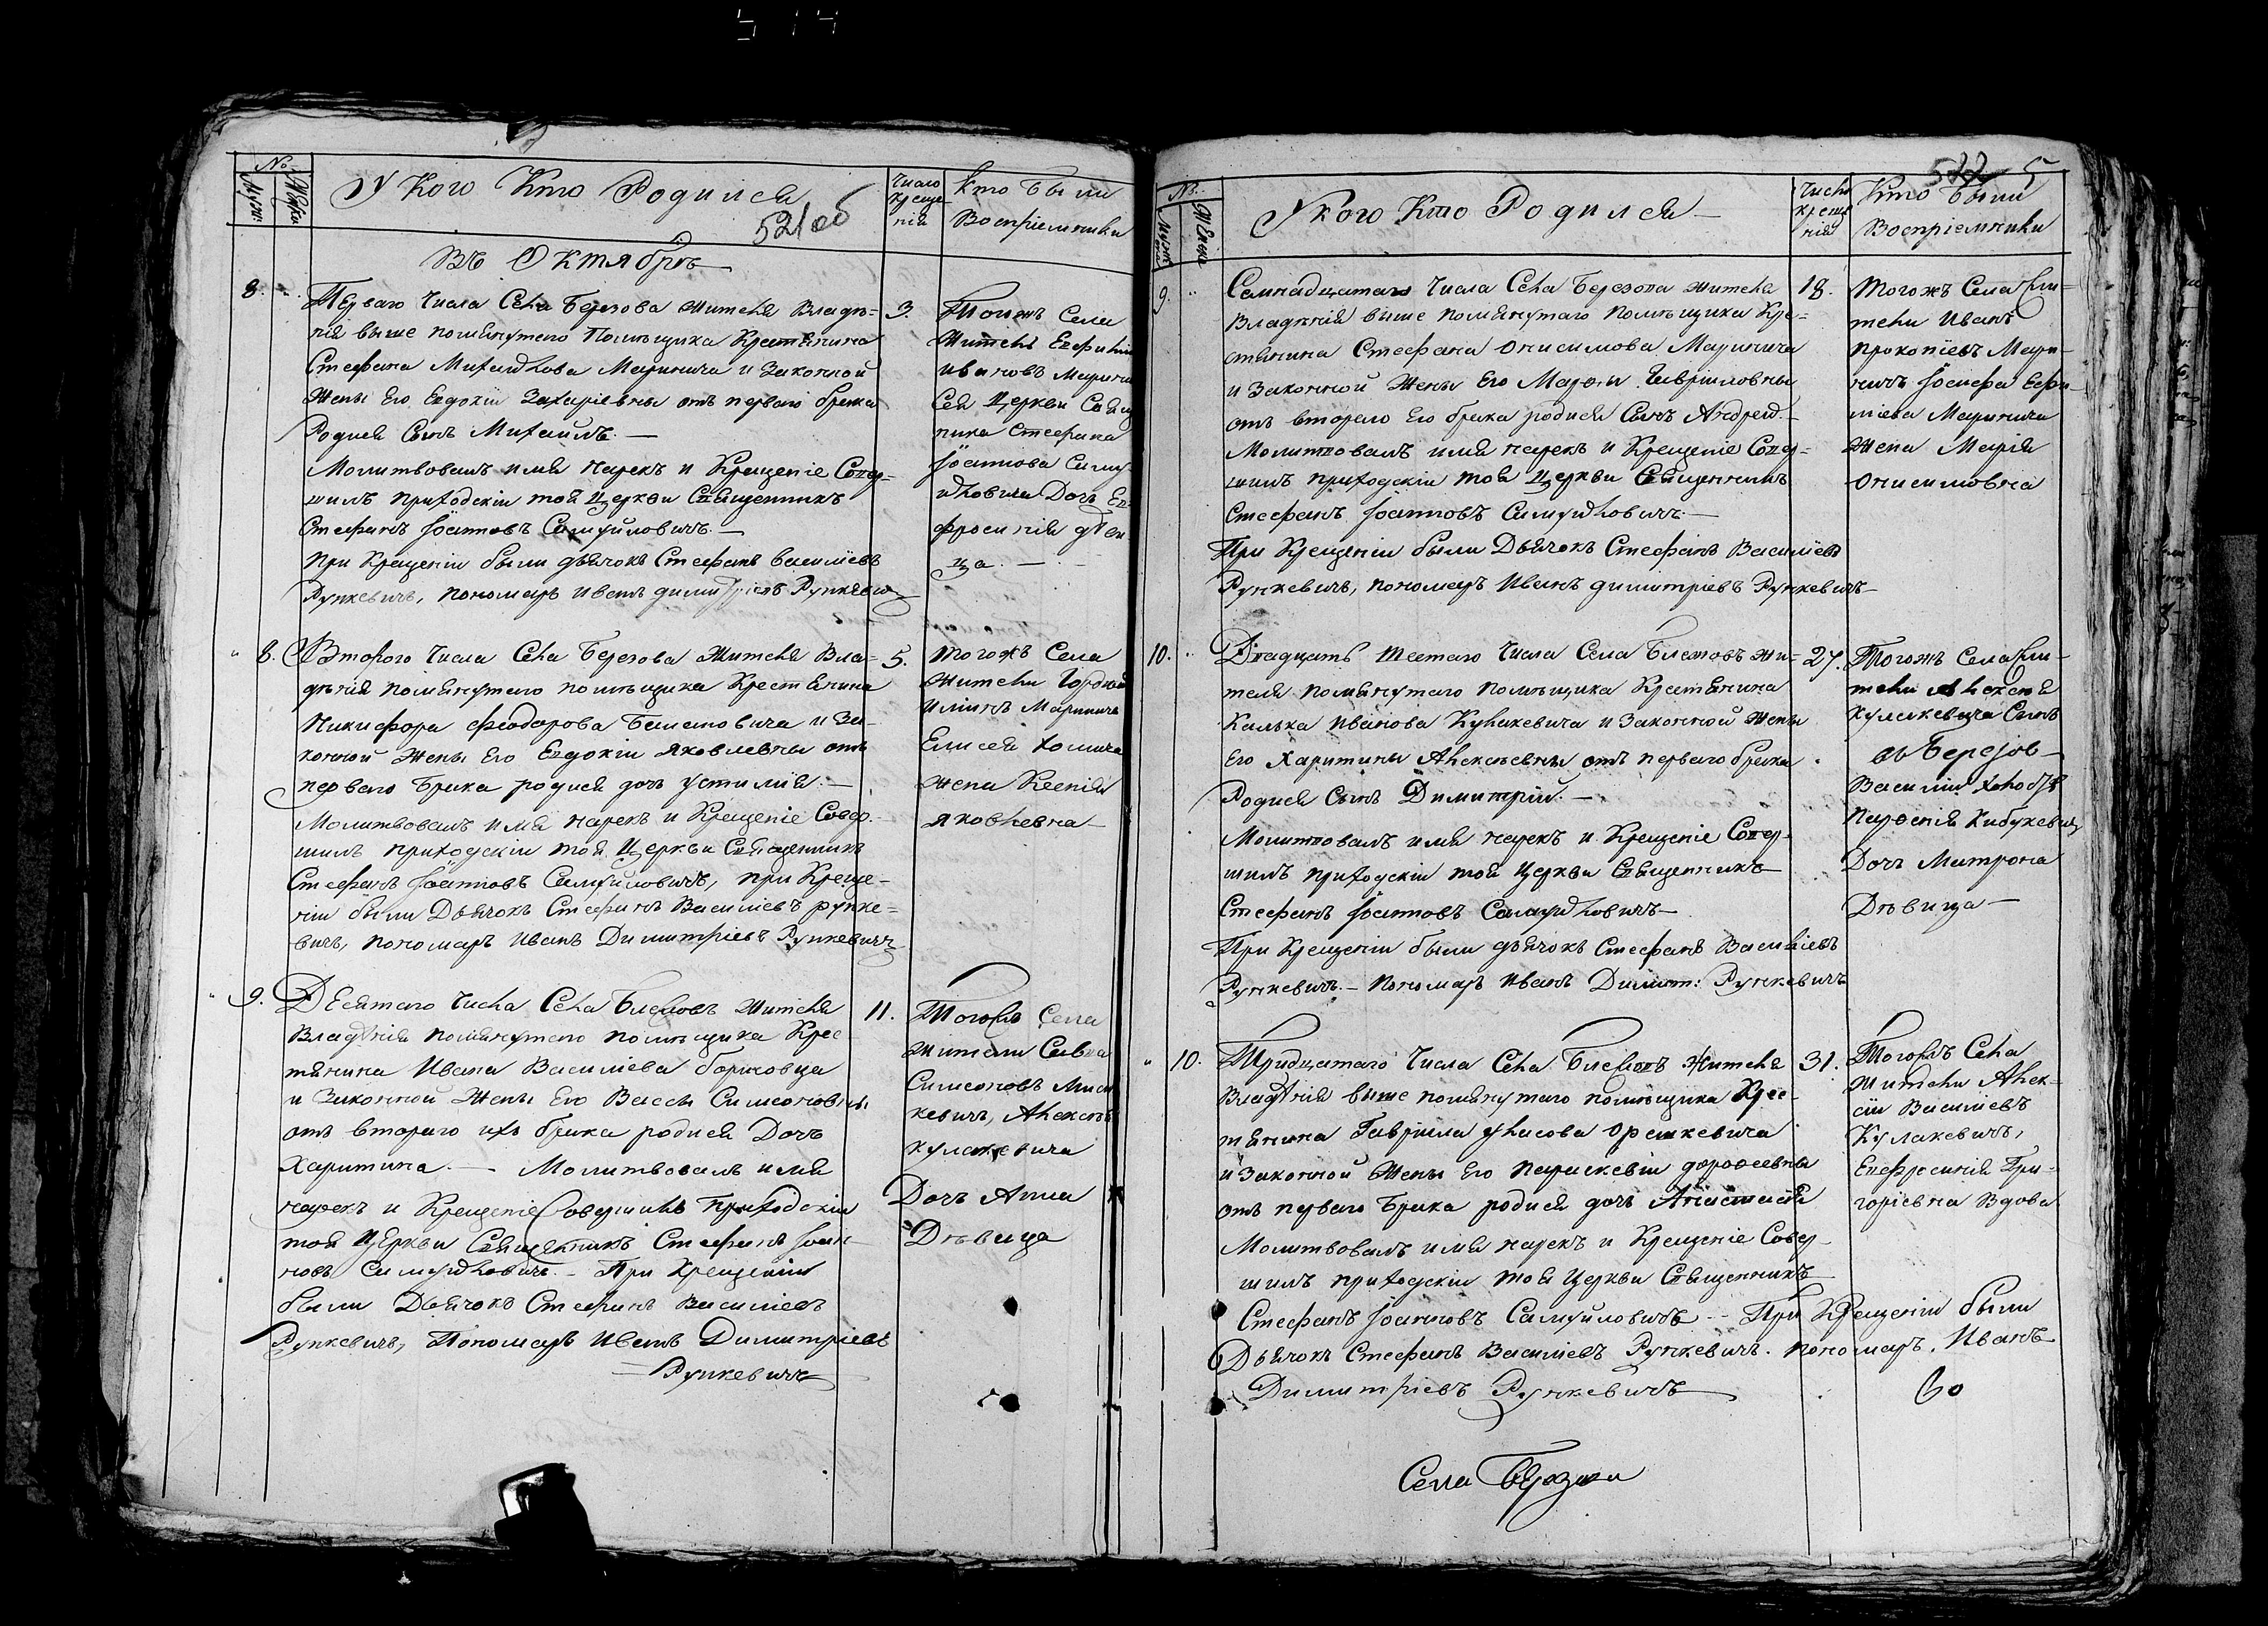 №
Мужи:
Женски
У Кого Кто Родился
521 об
Число
креще
нія
кто Были
Воспріемники
Въ Октябрѣ
8.
Перваго Числа Села Березова жителя Владѣ=
нія выше помянутаго Помѣщика Крестянина
Стефана Михайлова Маринича и Законной
Жены Его Евдокіи Захаріевны отъ перваго брака
Родися Сынъ Михаилъ. —
Молитвовалъ имя нарекъ и Крещеніе Совер=
шилъ приходскій той Церкви Священникъ
Стефанъ Іоанновъ Самуйловичъ. —
При Крещеніи были дьячокъ Стефанъ Василіевъ
Рункевичъ, пономарь Иванъ димитріевъ Рункевич
3.
Тогожъ Села
Житель Евфимій
ивановъ Марини
Сея Церкви Свящ
ника Стефана
Іоаннова Саму
йловича Дочь Ев
фросинія дѣви
ца. —
8.
Втораго Числа Села Березова Жителя Вла=
дѣнія помянутаго помѣщика Крестянина
Никифора феодорова и За-
конной Жены Его Евдокіи Яковлевны отъ
перваго Брака родися дочь устинія. —
Молитвовалъ имя нарекъ и Крещеніе Совер-
шилъ приходскій той Церкви Священникъ
Стефанъ Іоанновъ Самуйловичъ, при Креще-
ніи были Дьячокъ Стефанъ Василіевъ рунке=
вичъ, пономарь Иванъ Димитріевъ Рункевичъ
5.
тогожъ Села
Жители Гордѣй
Илiинъ Мариничъ
Елисея хомича
жена Ксенія
яковлевна
9.
Десятаго Числа Села Блежовъ Жителя
Владѣнія помянутаго помѣщика Крес
тянина Ивана Василіева борисовца
и Законной Жены Его Вассы Симеоновны
отъ втораго ихъ брака родися Дочь
Харитина. — Молитвовалъ имя
нарекъ и Крещеніе Совершилъ Приходскій
той Церкви Священникъ Стефанъ Іоан-
новъ Самуйловичъ. - При Крещеніи
были Дьячокъ Стефанъ Василіевъ
Рункевичъ, Пономарь Иванъ Димитріевъ
Рункевичъ
11.
Тогожъ Села
жители Савва
Симеоновъ
кевичъ, Алексѣя
кулакевича
Дочь Анна
Дѣвица
№
Мужи
Женски
У кого Кто Родился
Число
креще
нія
522 5
Кто Были
Воспріемники
9.
Семнадцатаго Числа Села Березова жителя
Владѣнія выше помянутаго помѣщика Кре=
стянина Стефана Онисимова Маринича
и Законной Жены Его Марфы Гавріиловны
отъ втораго Его брака родися Сынъ Андрей. -
Молитвовалъ имя нарекъ и Крещеніе Совер=
шилъ приходскій той Церкви Священникъ
Стефанъ Іоанновъ Самуйловичъ. —
При Крещеніи были Дьячокъ Стефанъ Василіевъ
Рункевичъ, пономарь Иванъ димитріевъ Рункевичъ
18.
тогожъ Села Жи-
тели Иванъ
прокопіевъ Мари-
ничъ Іосифа Ефи-
міева Маринича
Жена Марія
Онисимовна
10.
Двадцать Шестаго Числа Села Блежовъ жи=
теля помянутаго помѣщика Крестянина
Иванова Кулакевича и Законной Жены
Его Харитины Алексѣевны отъ перваго брака
Родися Сынъ Димитрій. —
Молитвовалъ имя нарекъ и Крещеніе Совер-
шилъ приходскій той Церкви Священникъ
Стефанъ Іоанновъ Самуйловичъ
При Крещеніи были дьячокъ Стефанъ Василіевъ
Рункевичъ. - Пономарь Иванъ Димит: Рункевичъ
27.
Тогожъ Села Жи-
тели Алексѣя
кулакевича Сынъ
Василій
Дочь Матрона
Дѣвица —
10.
Тридцатаго Числа Села Блежовъ Жителя
Владѣнія выше помянутаго помѣщика Крес-
тянина Гавріила уласова Орешкевича
и Законной Жены Его параскевіи дорофеевны
отъ перваго Брака родися дочь Анастасія
Молитвовалъ имя нарекъ и Крещеніе Совер-
шилъ приходскій той Церкви Священникъ
Стефанъ Іоанновъ Самуйловичъ - При Крещеніи были
Дьячокъ Стефанъ Василіевъ Рункевичъ. пономарь. Иванъ
Димитріевъ Рункевичъ
31.
Тогожъ Села
Жители Алек-
сій Василіевъ
Кулакевичъ,
Евфросинія Гри-
горіевна Вдова
Села